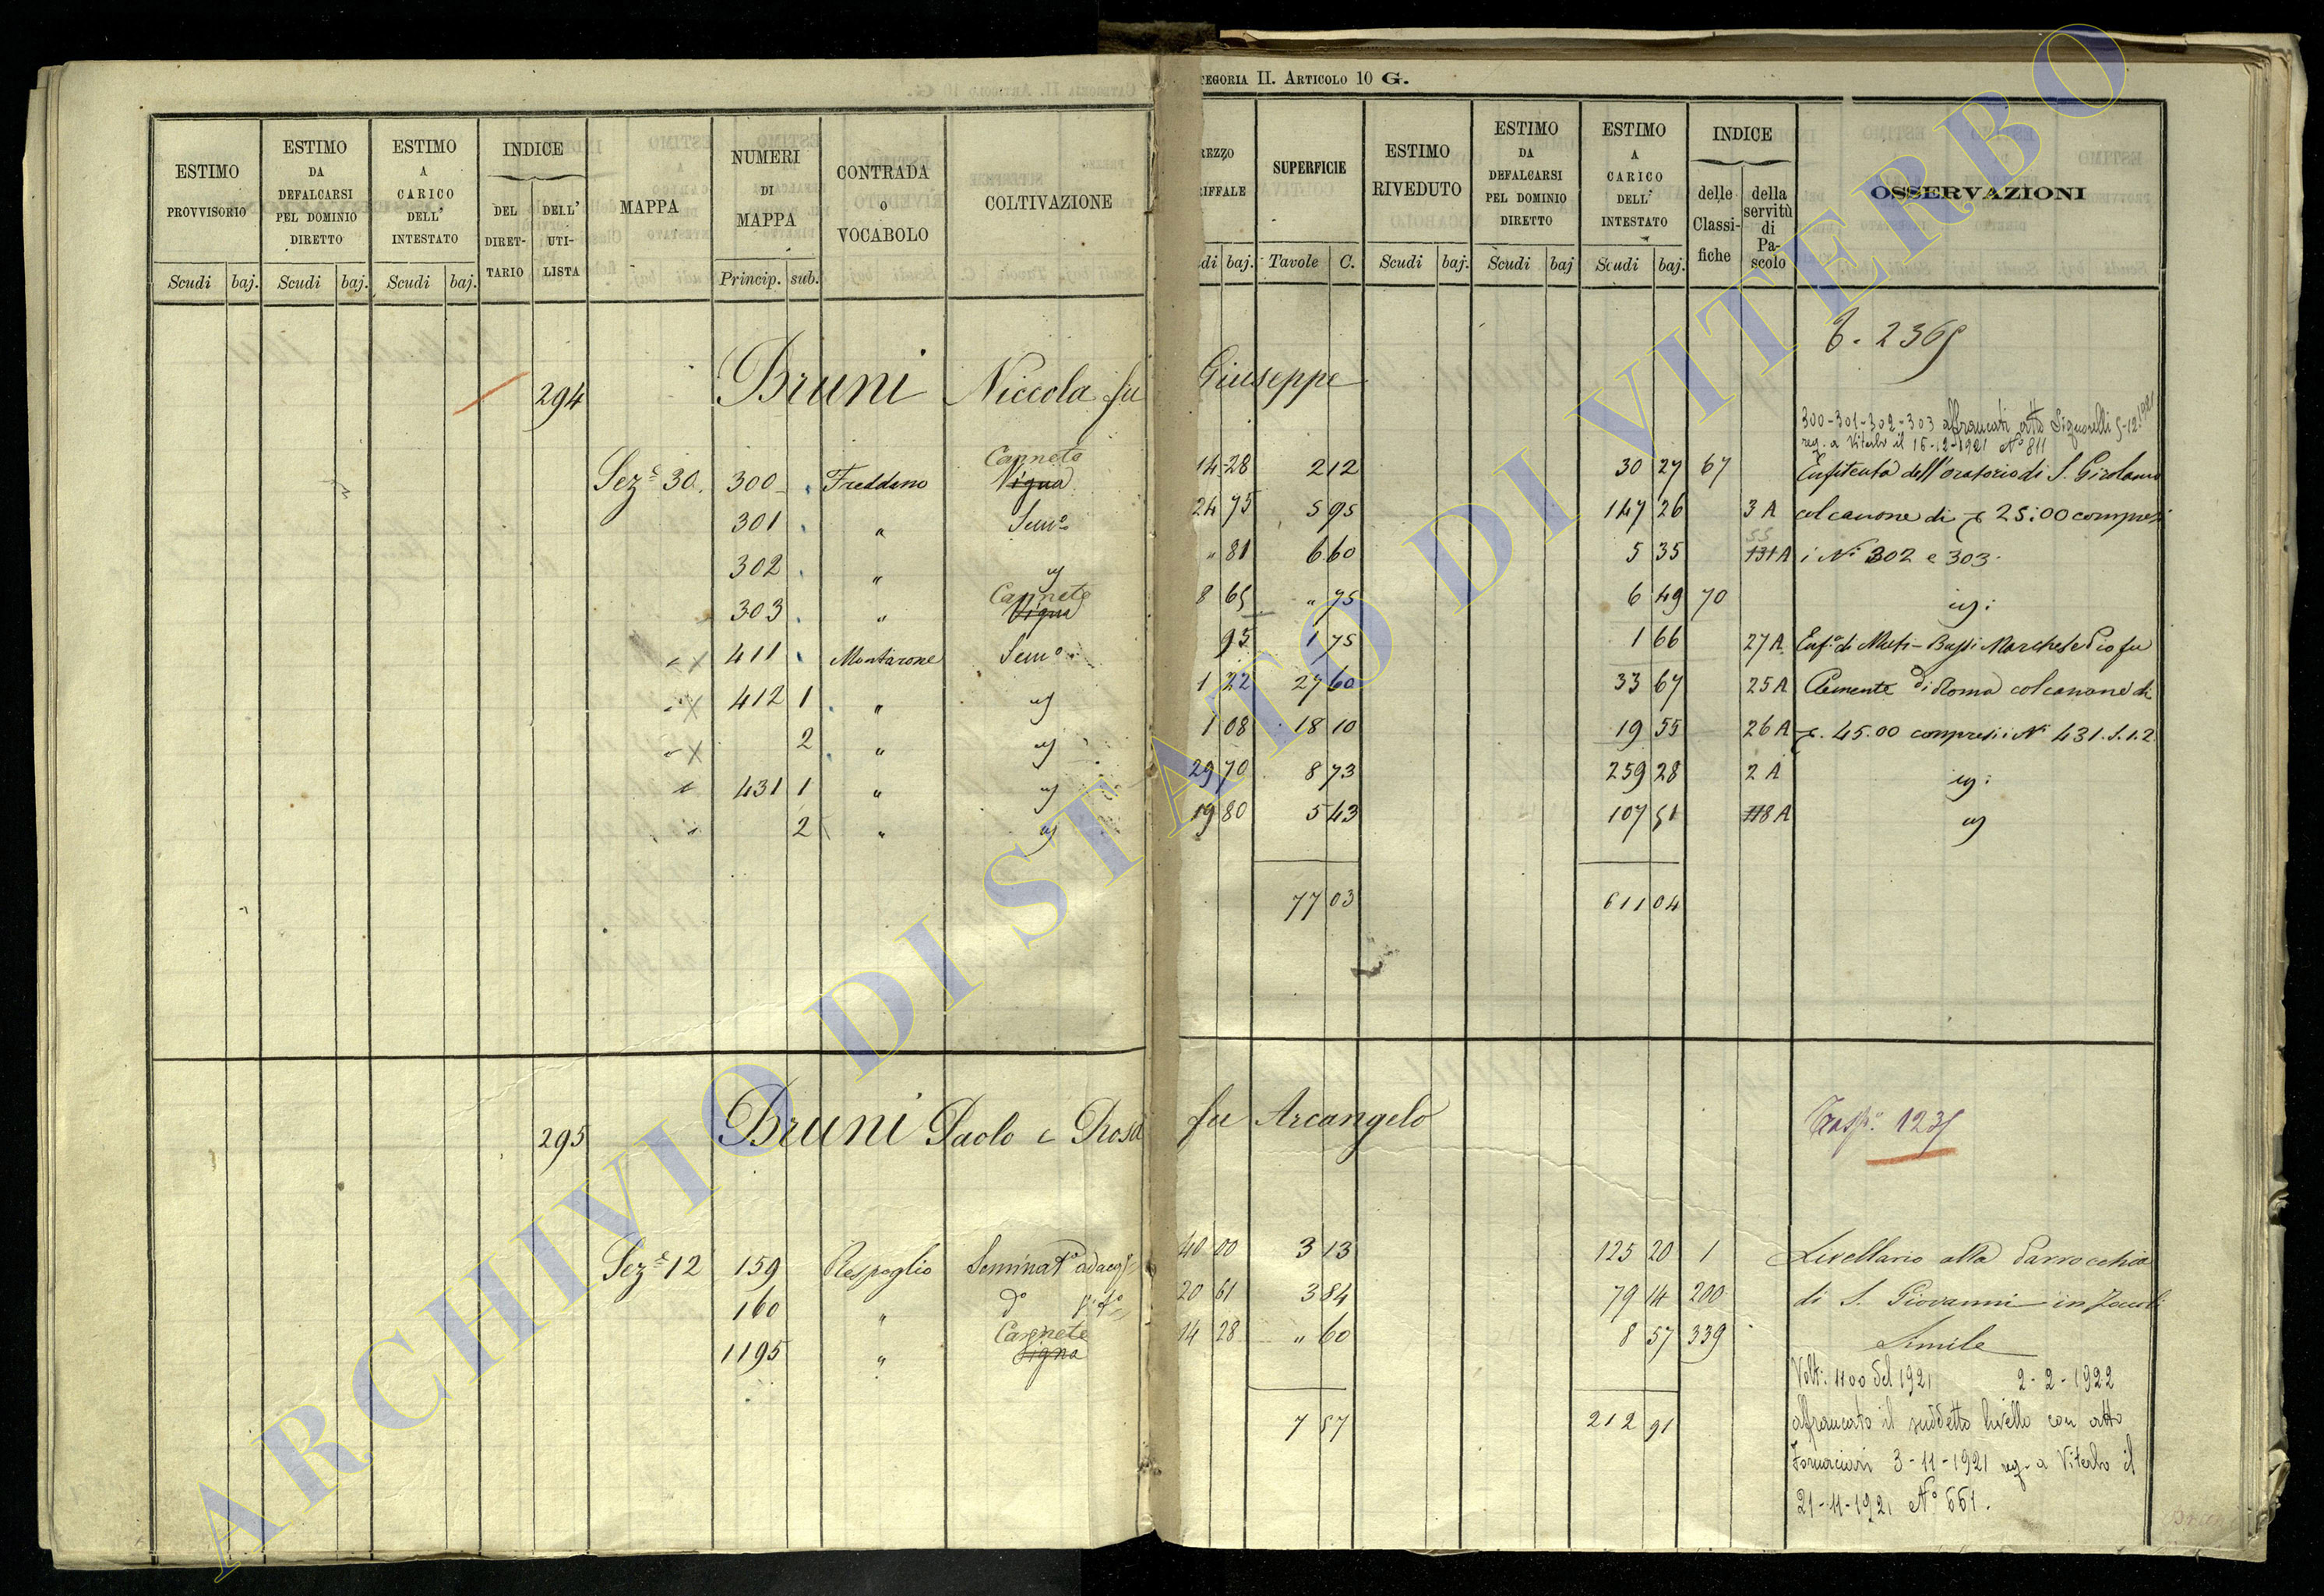 CATEGORIA II. ARTICOLO 10 G.
ESTIMO PROVVISORIO Scudi baj.
ESTIMO DA DEFALCARSI PEL DOMINIO DIRETTO Scudi baj.
ESTIMO A CARICO DELL' INTESTATO Scudi baj.
INDICE DEL DIRET-TARIO DELL' UTI-LISTA
MAPPA
NUMERI DI MAPPA Princip. sub.
CONTRADA O VOCABOLO
COLTIVAZIONE
REZZO RIFFALE di baj.
SUPERFICIE Tavole C.
ESTIMO RIVEDUTO Scudi baj.
ESTIMO DA DEFALCARSI PEL DOMINIO DIRETTO Scudi baj
ESTIMO A CARICO DELL' INTESTATO Scudi baj.
INDICE delle Classi-fiche della servitù di Pa-scolo
OSSERVAZIONI
294 Bruni Niccola fu Giuseppe
300-301-302-303 affrancati atto Signorelli 5-12-1921
reg. a Viterbo il 15-12-1921 N° 811
Sez.e 30. 300 Freddano Vigna Canneto 14 28 2 12 30 27 67 Enfiteuta dell'Oratorio di S. Girolamo
301 " Sem.o 24 75 5 95 147 26 3 A col canone di 25:00 compresi
302 " 81 6 60 5 35 131 A 55 i N.i 302 e 303.
303 " Vigna Canneto 8 65 " 75 6 49 70
411 Montarone Sem.o 95 1 75 1 66 27 A Enf.a di Muti-Bussi Marchese Pio fu
412 1 " 1 22 27 60 33 67 25 A Clemente di Roma col canone di
2 " 1 08 18 10 19 55 26 A 45.00 compresi i N.i 431.S.1.2.
431 1 " 29 70 8 73 259 28 2 A
2 " 19 80 5 43 107 51 118 A
77 03 611 04
295 Bruni Paolo e Rosa fu Arcangelo
Sez.e 12 159 Respoglio 40 00 3 13 125 20 1 Livellario alla Parrocchia
160 " d.o 20 61 3 84 79 14 200 di S. Giovanni in Zoccoli
1195 " Vigna Canneto 14 28 " 60 8 57 339 Simile
Volt. 1100 del 1921 2-2-1922
7 57 212 91 affrancato il suddetto livello con atto
3-11-1921 reg. a Viterbo il
21-11-1921 N° 661.
ARCHIVIO DI STATO DI VITERBO